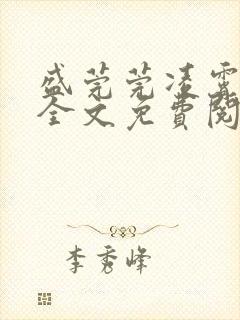 盛莞莞凌霄
全文免費閱
李秀峰